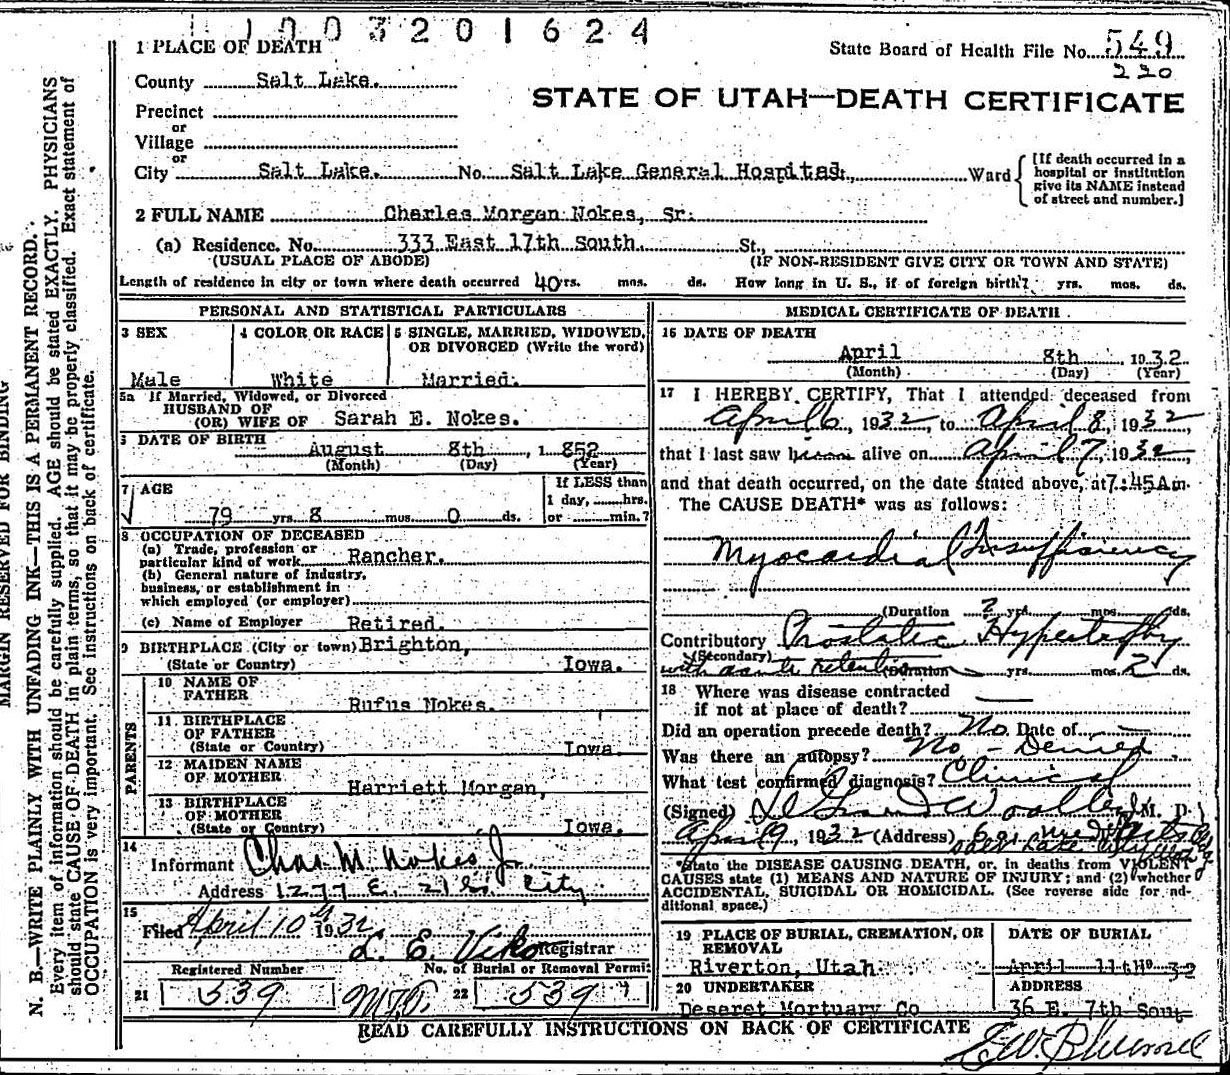 1003201624
1 PLACE OF DEATH
State Board of Health File No. 549
220
County Salt Lake.
STATE OF UTAH—DEATH CERTIFICATE
Precinct
or
Village
or
City Salt Lake. No. Salt Lake General Hospital, Ward
[If death occurred in a
hospital or institution
give its NAME instead
of street and number.]
2 FULL NAME Charles Morgan Nokes, Sr.
(a) Residence. No. 333 East 17th South. St.,
(USUAL PLACE OF ABODE) (IF NON-RESIDENT GIVE CITY OR TOWN AND STATE)
Length of residence in city or town where death occurred 40 yrs. mos. ds. How long in U. S., if of foreign birth? yrs. mos. ds.
PERSONAL AND STATISTICAL PARTICULARS
3 SEX
Male
4 COLOR OR RACE
White
5 SINGLE, MARRIED, WIDOWED,
OR DIVORCED (Write the word)
Married.
5a If Married, Widowed, or Divorced
HUSBAND OF
(OR) WIFE OF Sarah E. Nokes.
6 DATE OF BIRTH
August 8th, 1852
(Month) (Day) (Year)
7 AGE
79 yrs. 8 mos. 0 ds.
If LESS than
1 day, hrs.
or min.?
8 OCCUPATION OF DECEASED
(a) Trade, profession or
particular kind of work Rancher.
(b) General nature of industry,
business, or establishment in
which employed (or employer)
(c) Name of Employer Retired.
9 BIRTHPLACE (City or town) Brighton,
(State or Country) Iowa.
PARENTS
10 NAME OF
FATHER Rufus Nokes.
11 BIRTHPLACE
OF FATHER
(State or Country) Iowa.
12 MAIDEN NAME
OF MOTHER Harriett Morgan,
13 BIRTHPLACE
OF MOTHER
(State or Country) Iowa.
14
Informant Chas M. Nokes Jr
Address 1277 E. 21 So. City
15
Filed April 10th 1932
L. E. Viko Registrar
Registered Number No. of Burial or Removal Permit
21 539 22 539
MEDICAL CERTIFICATE OF DEATH
16 DATE OF DEATH
April 8th 1932
(Month) (Day) (Year)
17 I HEREBY CERTIFY, That I attended deceased from
April 6, 1932, to April 8, 1932
that I last saw him alive on April 7, 1932,
and that death occurred, on the date stated above, at 7:45 A m.
The CAUSE DEATH* was as follows:
Myocardial Insufficiency
(Duration 2 yrs. mos. ds.
Contributory Prostatic Hypertrophy
(Secondary)
with acute retention (Duration yrs. mos. 2 ds.
18 Where was disease contracted
if not at place of death?
Did an operation precede death? No Date of
Was there an autopsy? No - Denied
What test confirmed diagnosis? Clinical
(Signed) Woolley M. D.
April 9, 1932 (Address)
*State the DISEASE CAUSING DEATH, or, in deaths from VIOLENT
CAUSES state (1) MEANS AND NATURE OF INJURY; and (2) whether
ACCIDENTAL, SUICIDAL OR HOMICIDAL. (See reverse side for additional space.)
19 PLACE OF BURIAL, CREMATION, OR
REMOVAL
Riverton, Utah.
DATE OF BURIAL
April 11th 32
20 UNDERTAKER
Deseret Mortuary Co
ADDRESS
36 E. 7th Sout
READ CAREFULLY INSTRUCTIONS ON BACK OF CERTIFICATE
MARGIN RESERVED FOR BINDING
N. B.—WRITE PLAINLY WITH UNFADING INK—THIS IS A PERMANENT RECORD.
Every item of information should be carefully supplied. AGE should be stated EXACTLY. PHYSICIANS
should state CAUSE OF DEATH in plain terms, so that it may be properly classified. Exact statement of
OCCUPATION is very important. See instructions on back of certificate.